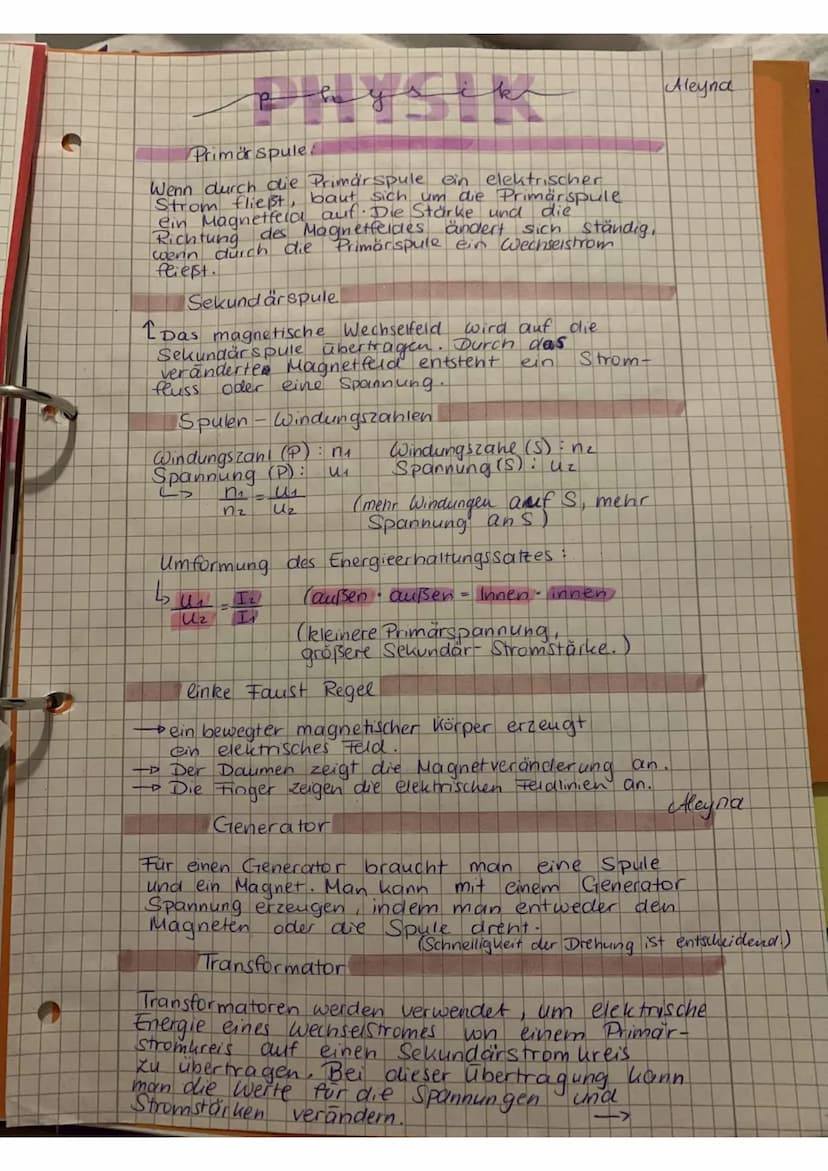 PHYSIK
physik
Aleyna
Primärspule:
Wenn durch die Primärspule ein elektrischer
Strom fließt, baut sich um die Primärspule
ein Magnetfeld auf. Die Stärke und die
Richtung des Magnetfeldes ändert sich ständig,
wenn durch die Primärspule ein Wechselstrom
fließt.
Sekundärspule
↑ Das magnetische Wechselfeld wird auf die
Sekundärspule übertragen. Durch das
veränderte Magnetfeld entsteht ein Strom-
fluss oder eine Spannung.
Spulen - Windungszahlen
Windungszahl (P): n1 Windungszahl (S): n2
Spannung (P): U1 Spannung (S): U2
↳ n1/n2 = U1/U2 (mehr Windungen auf S, mehr
Spannung an S)
Umformung des Energieerhaltungssatzes:
↳ U1/U2 = I2/I1 (außen · außen = Innen · innen)
(kleinere Primärspannung,
größere Sekundär-Stromstärke.)
linke Faust Regel
→ ein bewegter magnetischer Körper erzeugt
ein elektrisches Feld.
→ Der Daumen zeigt die Magnetveränderung an.
→ Die Finger zeigen die elektrischen Feldlinien an.
Aleyna
Generator
Für einen Generator braucht man eine Spule
und ein Magnet. Man kann mit einem Generator
Spannung erzeugen, indem man entweder den
Magneten oder die Spule dreht.
(Schnelligkeit der Drehung ist entscheidend!)
Transformator
Transformatoren werden verwendet, um elektrische
Energie eines Wechselstromes von einem Primär-
stromkreis auf einen Sekundärstromkreis
zu übertragen. Bei dieser Übertragung kann
man die Werte für die Spannungen und
Stromstärken verändern. →